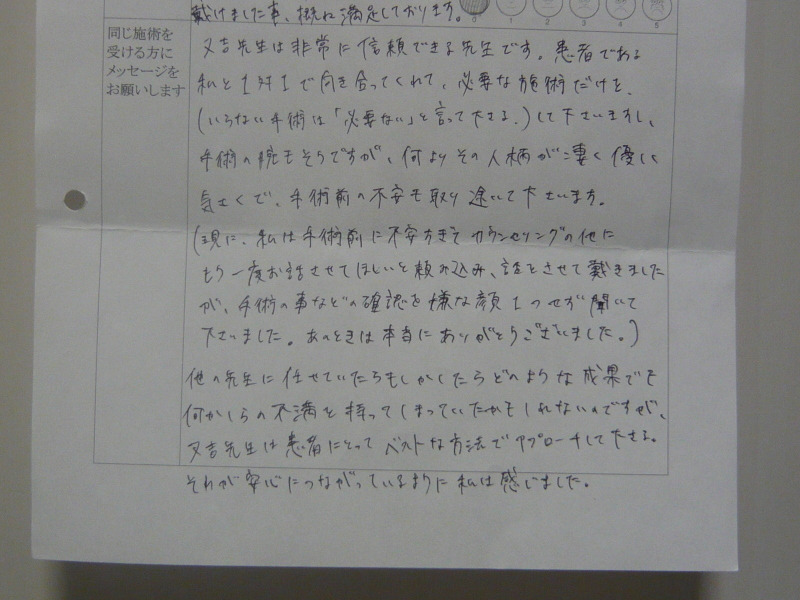 戴けました事、概ね満足しております。
0 1 2 3 4 5
同じ施術を
受ける方に
メッセージを
お願いします
又吉先生は非常に信頼できる先生です。患者である
私と1対1で向き合ってくれて、必要な施術だけを
(いらない手術は「必要ない」と言って下さる。)して下さいますし、
手術の腕もそうですが、何よりその人柄が凄く優しく
気さくで、手術前の不安も取り除いて下さいます。
(現に、私は手術前に不安すぎてカウンセリングの他に
もう一度お話させてほしいと頼み込み、話をさせて戴きました
が、手術の事などの確認を嫌な顔1つせず聞いて
下さいました。あのときは本当にありがとうございました。)
他の先生に任せていたらもしかしたらどのような成果でも
何かしらの不満を持ってしまっていたかもしれないのですが、
又吉先生は患者にとってベストな方法でアプローチして下さる。
それが安心につながっているように私は感じました。